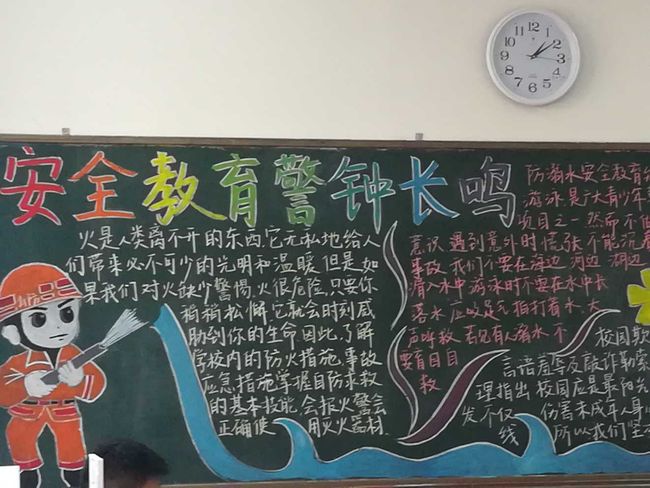 安全教育警钟长鸣
火是人类离不开的东西它无私地给人
们带来必不可少的光明和温暖但是如
果我们对火缺少警惕,火很危险,只要你
稍稍松懈它就会时刻威
胁到你的生命因此,了解
学校内的防火措施事故
应急措施掌握自防求救
的基本技能会报火警会
正确使用灭火器材
防溺水安全教育
游泳是广大青少年
项目之一然而不
意识遇到意外时慌张不能沉着
事故我们不要在海边河边湖边
清入水中游泳时不要在水中长
落水应双足气拍打着水大
声呼救若见有人溺水不
要盲目目
救
校园欺
言语羞辱及敲诈勒索
理指出校园应是最阳光
发不仅伤害未成年人身心
线所以我们坚
12 1 2 3 4 5 6 7 8 9 10 11